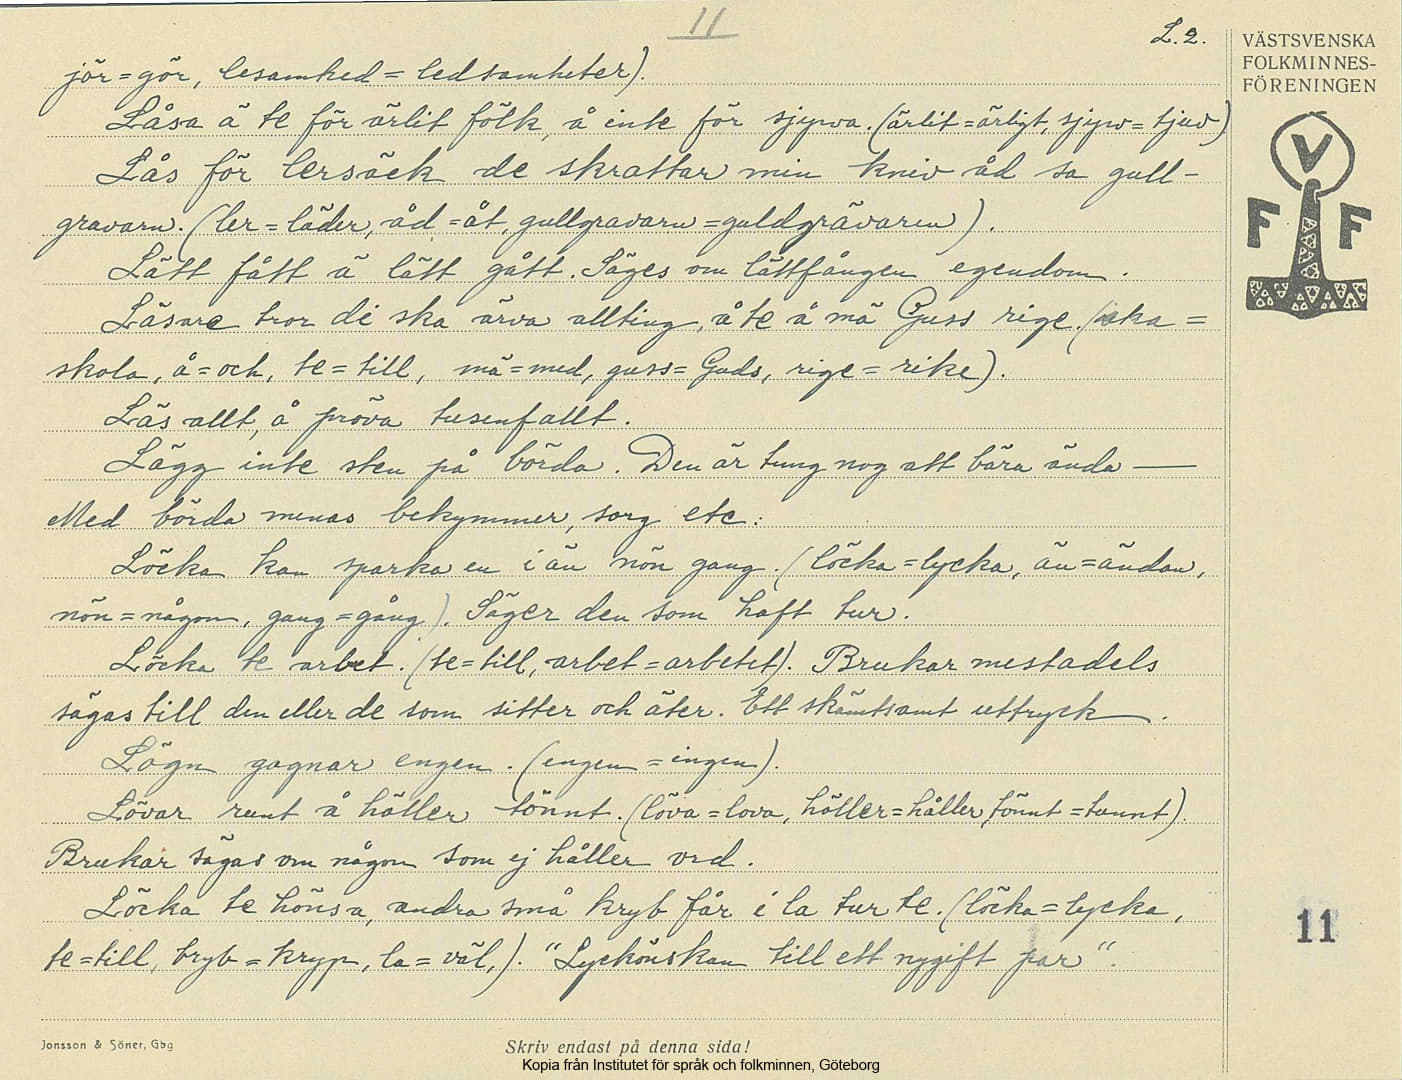 11
L.2.
VÄSTSVENSKA
FOLKMINNES-
FÖRENINGEN
V
F F
jör = gör, lesamhed = ledsamheter).
Låsa ä te för ärlit fölk, å inte för sjyva. (ärlit = ärligt, sjyv = tjuv)
Lås för lersäck de skrattar min kniv åd sa gull-
gravarn. (ler = läder, åd = åt, gullgravarn = guldgrävaren).
Lätt fått ä lätt gått. Säges om lättfången egendom.
Läsare tror di ska ärva allting, å te å mä Guss rige. (ska =
skola, å = och, te = till, mä = med, guss = Guds, rige = rike).
Läs allt, å pröva tusenfallt.
Lägg inte sten på börda. Den är tung nog att bära ända —
Med börda menas bekymmer, sorg etc.
Löcka kan sparka en i än nön gang. (löcka = lycka, än = ändan,
nön = någon, gang = gång). Säger den som haft tur.
Löcka te arbet. (te = till, arbet = arbetet). Brukar mestadels
sägas till den eller de som sitter och äter. Ett skämtsamt uttryck.
Lögn gagnar engen. (engen = ingen).
Lövar runt å höller tönnt. (löva = lova, höller = håller, tönnt = tunnt).
Brukar sägas om någon som ej håller ord.
Löcka te hönsa, andra små kryb får i la tur te. (löcka = lycka,
te = till, bryb = kryp, la = väl,). "Lyckönskan till ett nygift par".
11
Jonsson & Söner, Gbg
Skriv endast på denna sida!
Kopia från Institutet för språk och folkminnen, Göteborg